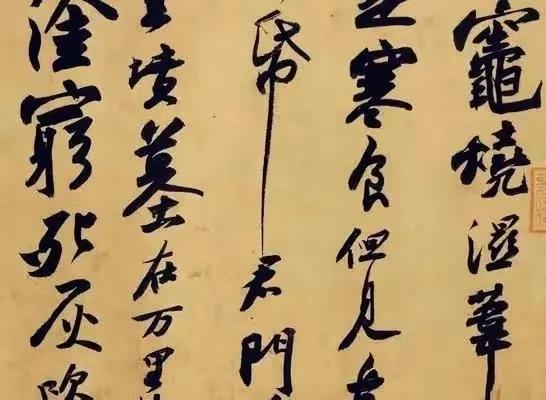 竈燒濕葦
寒食但見
帋君門
墳墓在万里
塗窮死灰吹